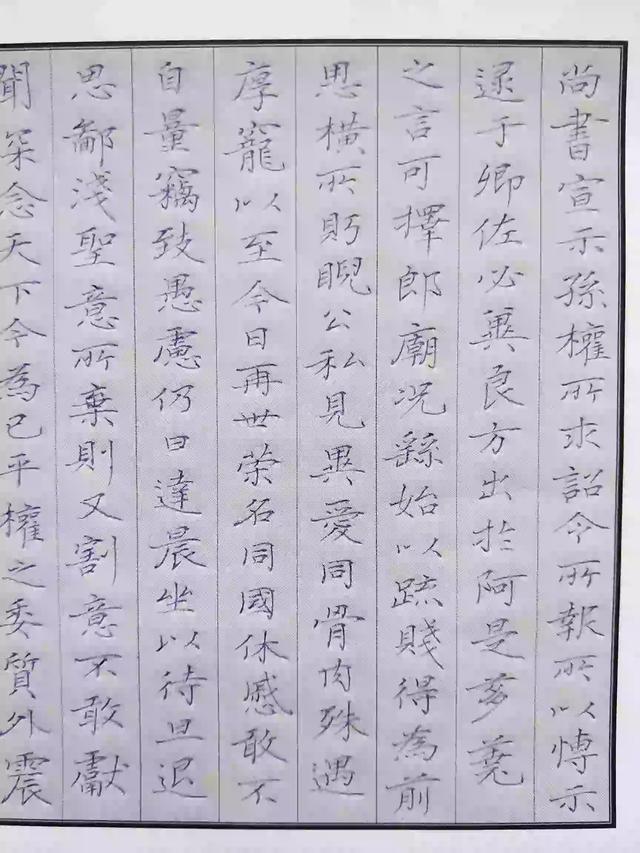 尚書宣示孫權所求詔令所報所以博示
逮于卿佐必冀良方出於阿是芻蕘
之言可擇郎廟況繇始以疏賤得為前
恩橫所眄睨公私見異愛同骨肉殊遇
厚寵以至今日再世榮名同國休慼敢不
自量竊致愚慮仍日達晨坐以待旦退
思鄙淺聖意所棄則又割意不敢獻
聞深念天下今為已平權之委質外震